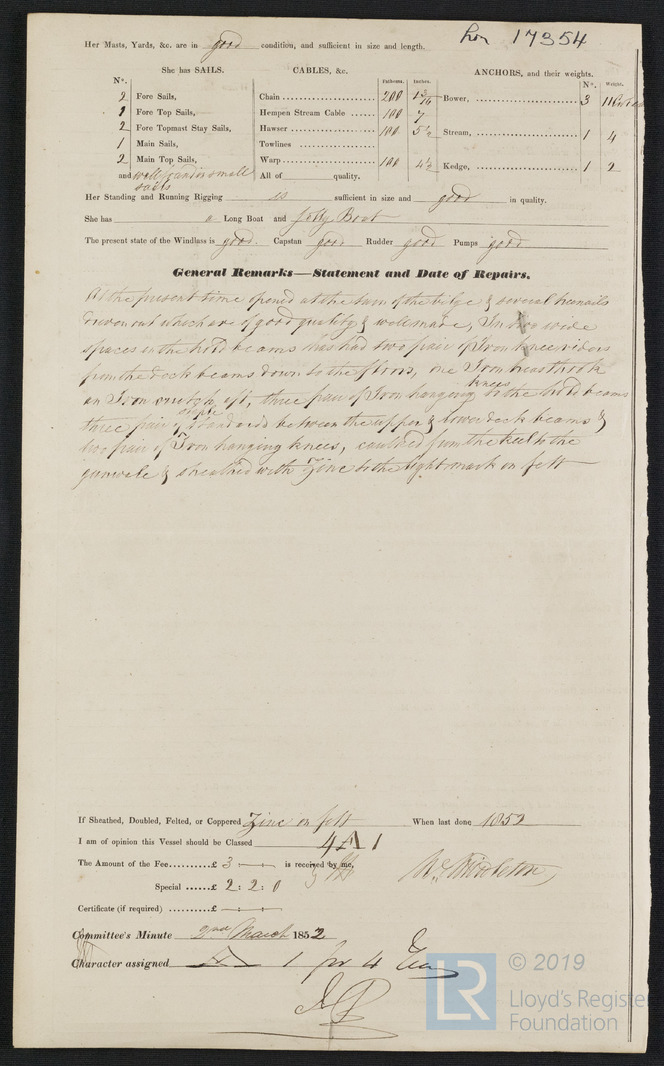 Lon 17354
Her Masts, Yards, &c. are in good condition, and sufficient in size and length.
She has SAILS. CABLES, &c. ANCHORS, and their weights.
N°. Fathoms. Inches. N°. Weight.
2 Fore Sails, Chain 200 1 3/16 Bower, 3
2 Fore Top Sails, Hempen Stream Cable 100 7
2 Fore Topmast Stay Sails, Hawser 100 5½ Stream, 1 4
1 Main Sails, Towlines
2 Main Top Sails, Warp 100 4½ Kedge, 1 2
and well found in small sails All of quality.
Her Standing and Running Rigging is sufficient in size and good in quality.
She has a Long Boat and Jolly Boat
The present state of the Windlass is good. Capstan good Rudder good Pumps good
General Remarks—Statement and Date of Repairs.
At the present time opened at the turn of the bilge & several treenails
driven out which are of good quality & well made, In wide
spaces in the hold beams has had two pair of Iron knee riders
from the deck beams down to the floors, one Iron breasthook
an Iron crutch aft, three pair of Iron hanging knees to the hold beams
three pair of staple standards between the upper & lower deck beams &
two pair of Iron hanging knees, caulked from the keel to the
gunwale & sheathed with Zinc to the light mark on felt
If Sheathed, Doubled, Felted, or Coppered Zinc on felt When last done 1852
I am of opinion this Vessel should be Classed 4 A 1
The Amount of the Fee £ 3 is received by me,
Special £ 2 : 2 : 0 Wm Middleton
Certificate (if required) £
Committee's Minute 2nd March 1852
Character assigned A 1 for 4 Years
© 2019
LR Lloyd's Register
Foundation